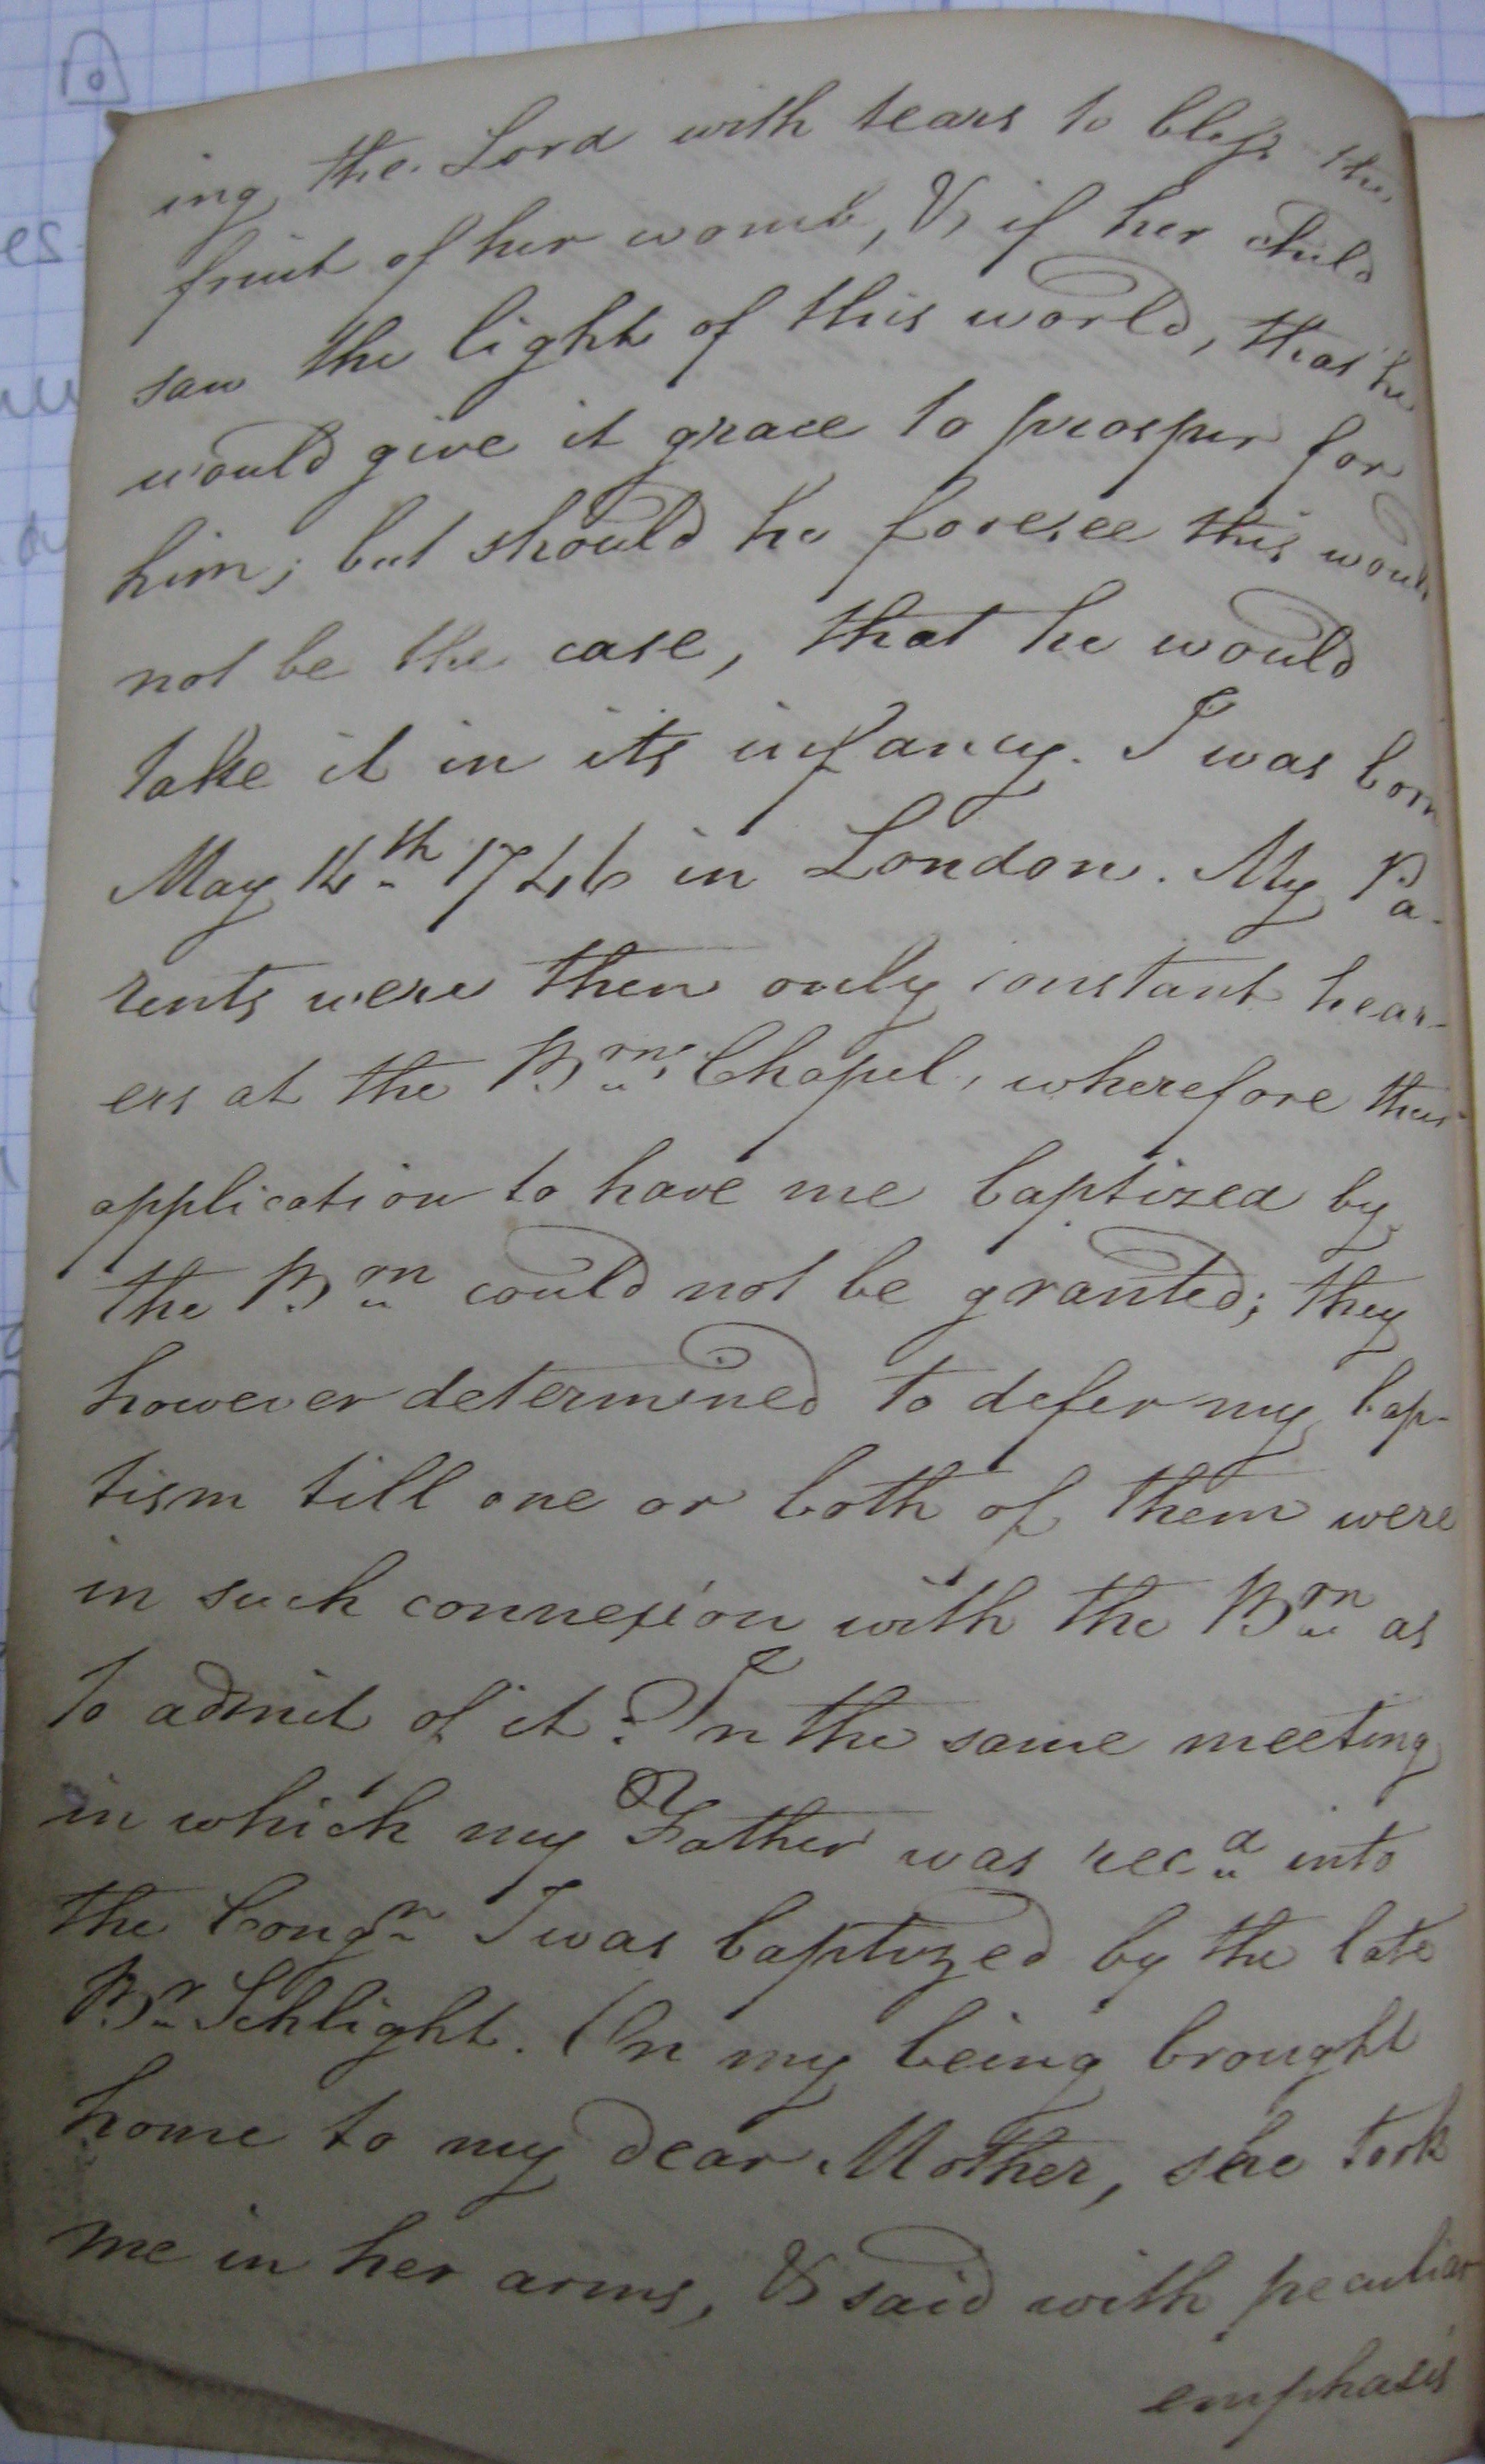 ing the Lord with tears to bless the
fruit of her womb, & if her child
saw the light of this world, that he
would give it grace to prosper for
him; but should he foresee this would
not be the case, that he would
take it in its infancy. I was born
May 14th 1746 in London. My Pa-
rents were then only constant hear-
ers at the Brn's Chapel, wherefore their
application to have me baptized by
the Brn could not be granted; they
however determined to defer my bap-
tism till one or both of them were
in such connexion with the Brn as
to admit of it. In the same meeting
in which my Father was recd into
the Congn I was baptized by the late
Br Schlight. On my being brought
home to my dear Mother, she took
me in her arms, & said with peculiar
emphasis